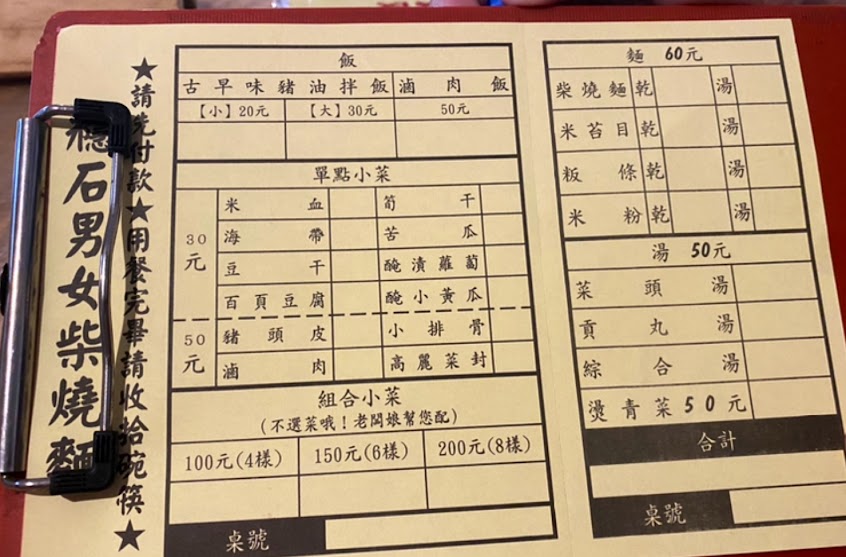 石男女柴燒麵
★請先付款★用餐完畢請收拾碗筷★
飯
古早味豬油拌飯 滷肉飯
【小】20元 【大】30元 50元
單點小菜
30元
米血 筍干
海帶 苦瓜
豆干 醃漬蘿蔔
百頁豆腐 醃小黃瓜
50元
豬頭皮 小排骨
滷肉 高麗菜封
組合小菜
(不選菜哦!老闆娘幫您配)
100元(4樣) 150元(6樣) 200元(8樣)
桌號
麵 60元
柴燒麵 乾 湯
米苔目 乾 湯
粄條 乾 湯
米粉 乾 湯
湯 50元
菜頭湯
貢丸湯
綜合湯
燙青菜50元
合計
桌號